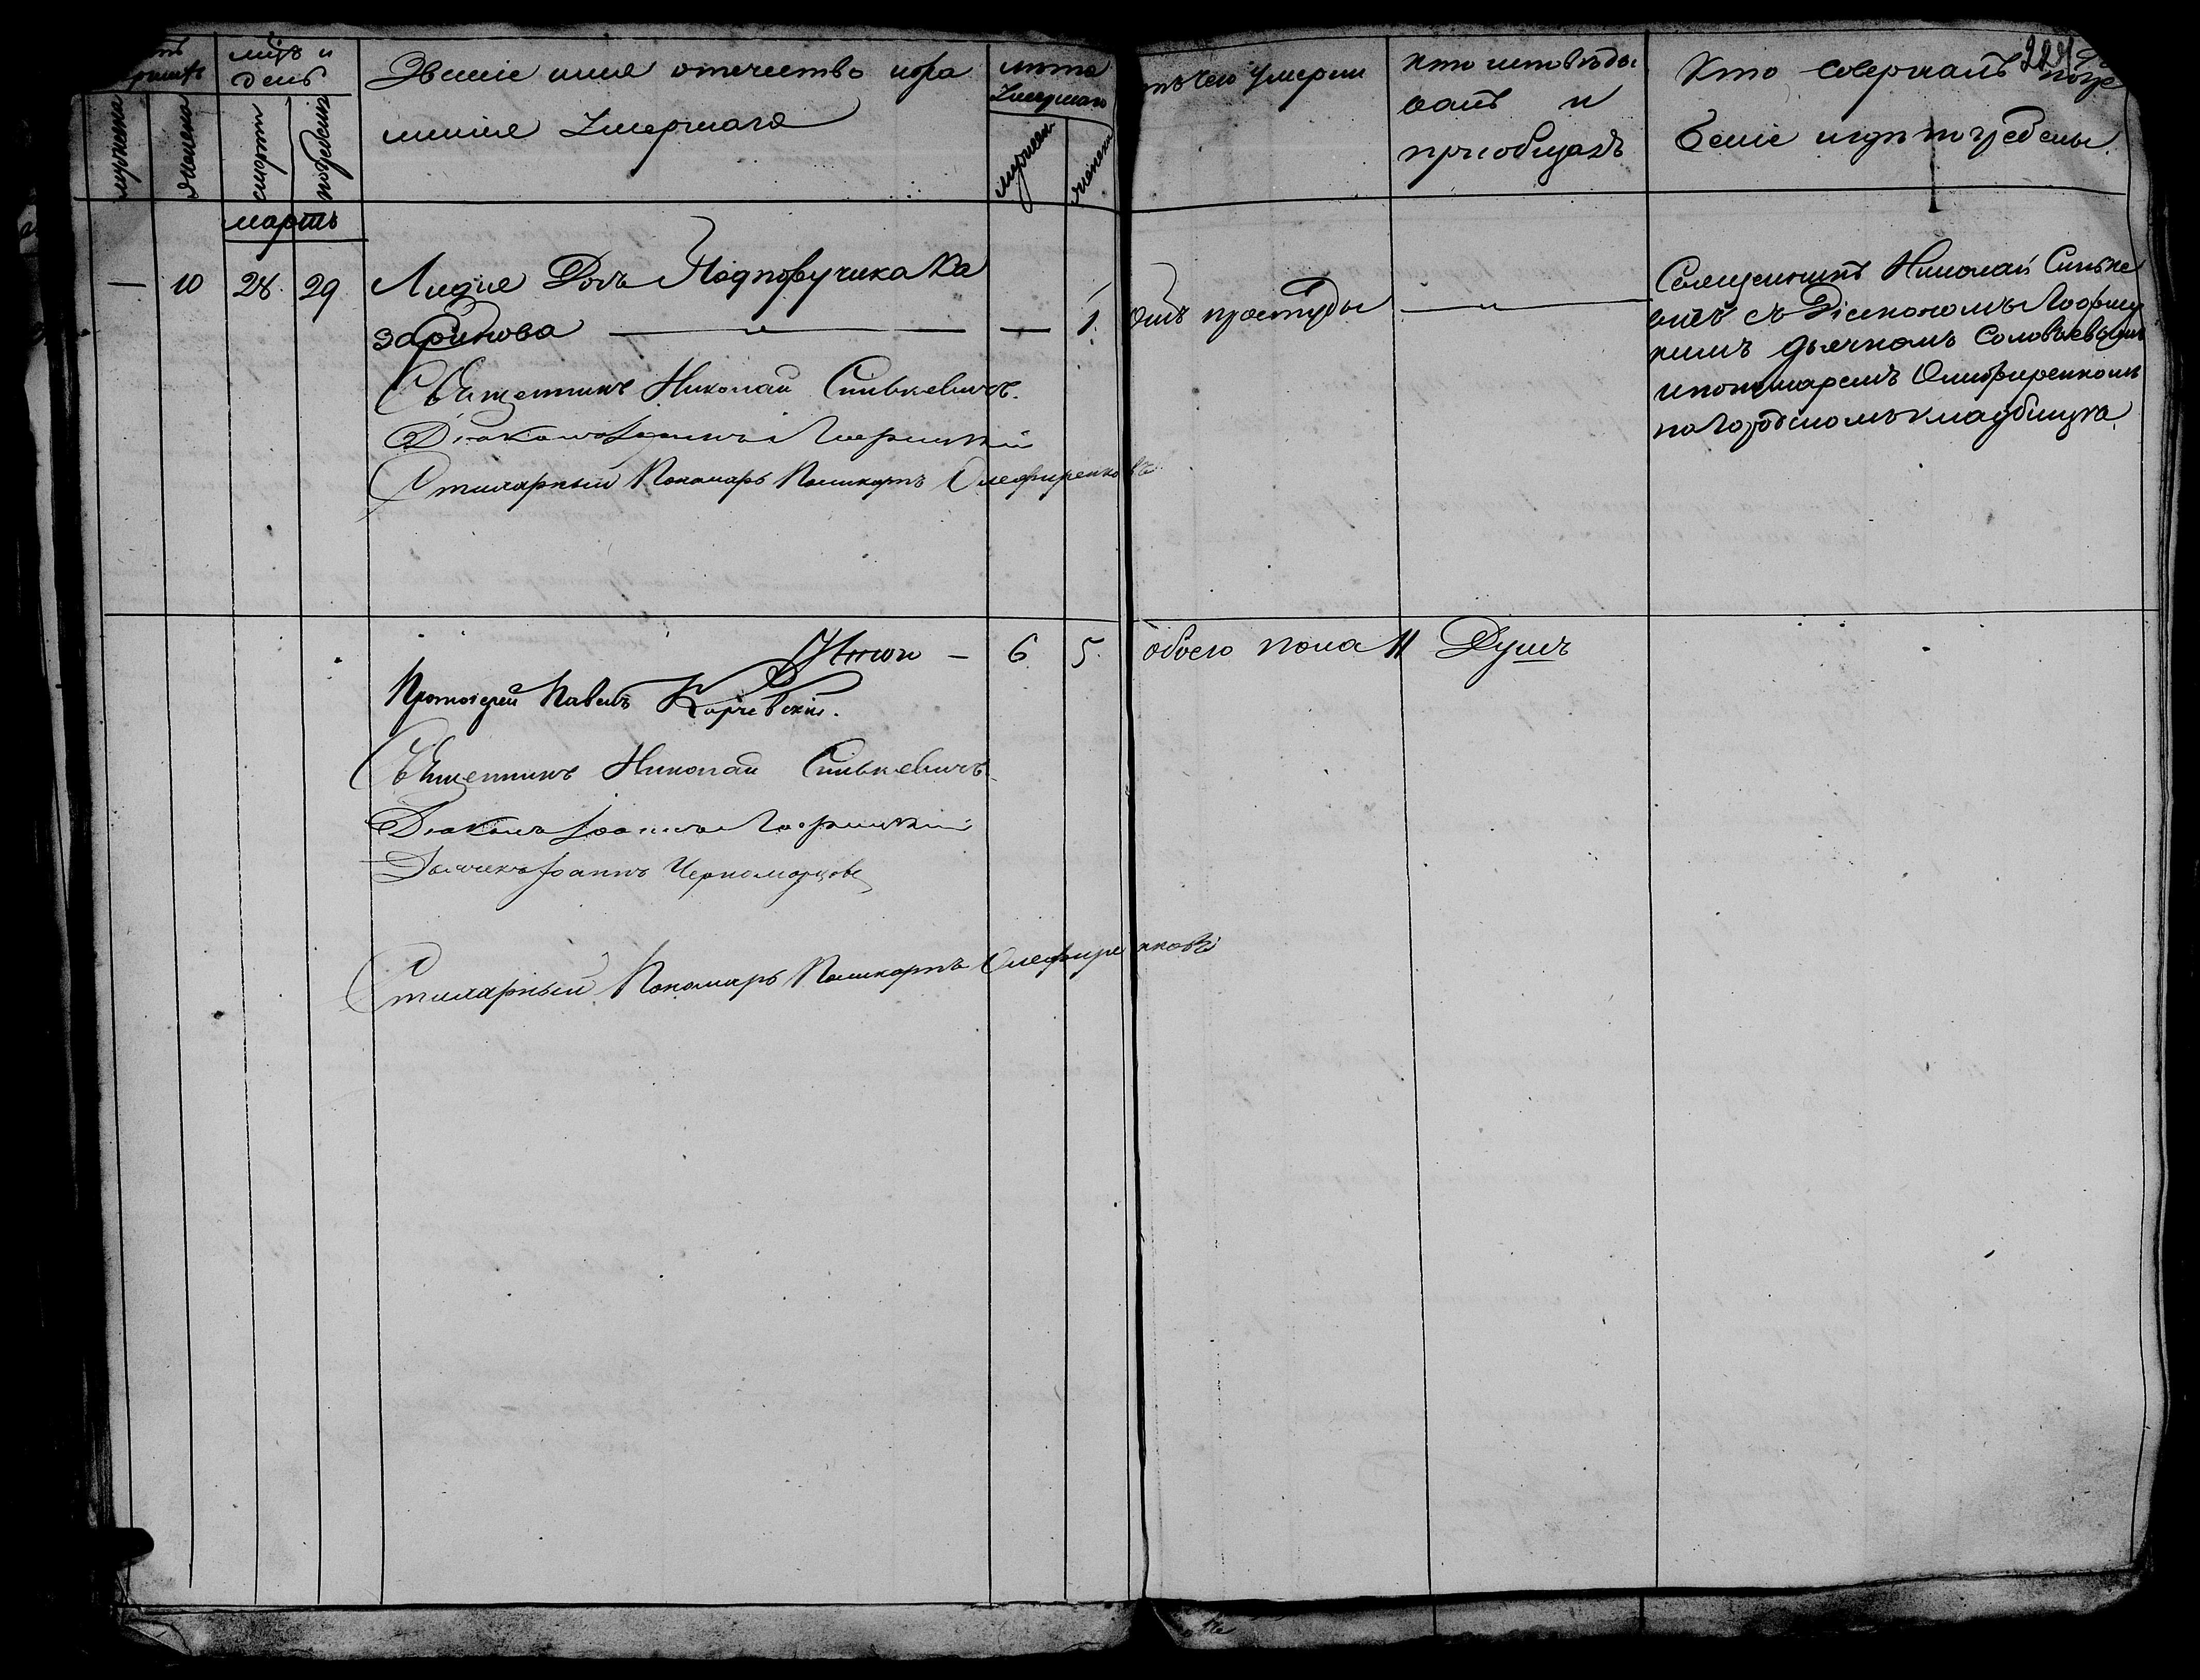 мцъ и
день
Званіе имя отечество ифа
милія Умершаго
лѣта
Умершаго
чего умерли
кто исповѣды
валъ и
пріобщалъ
Кто совершалъ погре
беніе и гдѣ погребены
мужеска
женска
смерти
погребенія
мужеск
женск
мартъ
— 10 28. 29 Лидія Дочь Подпоручика Ка
заринова — " — — 1. отъ простуды — " —
Священникъ Николай Синьке
вичъ съ Діакономъ
кимъ дьячкомъ Соловьевымъ
и пономаремъ Олефиренкомъ
на городскомъ кладбищѣ
Священникъ Николай Синькевичъ.
Діаконъ Іоаннъ
Стихарный Пономарь Поликарпъ Олефиренковъ
Итого — 6 5. обоего пола 11 Душъ
Протоіерей Павелъ Карчевскій.
Священникъ Николай Синькевичъ
Діаконъ Іоаннъ
Дьячекъ Іоаннъ Черноморцовъ
Стихарный Пономарь Поликарпъ Олефиренковъ